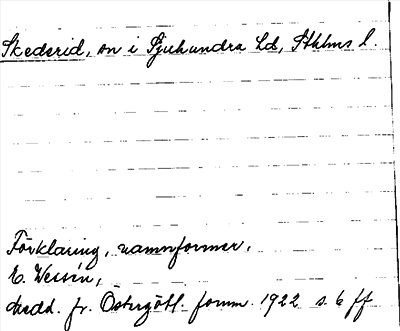 Skederid, sn i Sjuhundra hd, Sthlms l.
Förklaring, namnformer.
E. Wessén,
Medd. fr. Östergötl. fornm. 1922 s. 6 ff